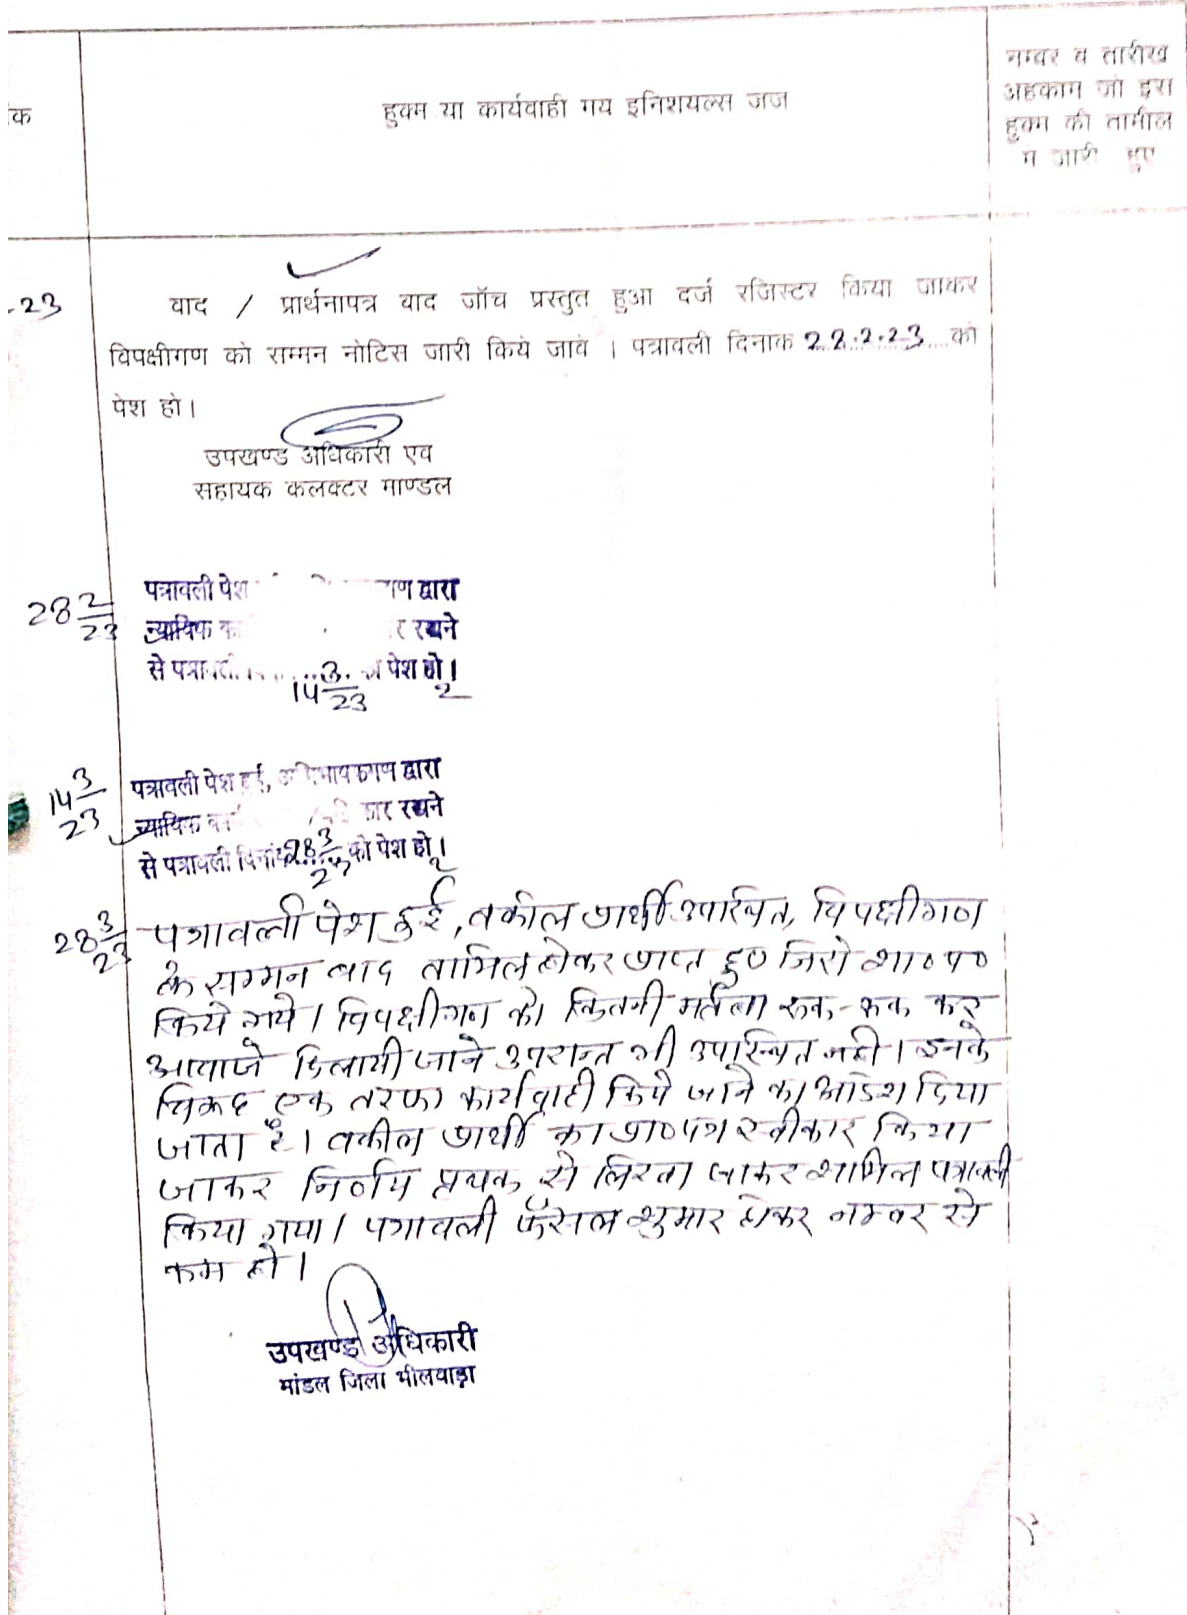 हुक्म या कार्यवाही मय इनिशयल्स जज
नम्वर व तारीख
अहकाम जो इस
हुक्म की तामील
म जारी हुए
क
-23
वाद / प्रार्थनापत्र वाद जॉच प्रस्तुत हुआ दर्ज रजिस्टर किया जाकर
विपक्षीगण को सम्मन नोटिस जारी किये जावे । पत्रावली दिनांक 22.2.23 को
पेश हो।
उपखण्ड अधिकारी एव
सहायक कलक्टर माण्डल
28 2/23
पत्रावली पेश गण द्वारा
न्यायिक का र रखने
से पत्रावली 14 3/23 पेश हो।
14 3/23
पत्रावली पेश हुई, अभिभाषकगण द्वारा
न्यायिक कार रखने
से पत्रावली दिनांक 28 3/23 को पेश हो।
28 3/23
पत्रावली पेश हुई, वकील प्रार्थी उपस्थित, विपक्षीगण
के सम्मन बाद तामिल होकर प्राप्त हुए जिसे शा०प०
किये गये। विपक्षीगण को कितनी मर्तबा रूक-रूक कर
आवाजे दिलायी जाने उपरान्त भी उपस्थित नही। इनके
विरूद्ध एक तरफा कार्यवाही किये जाने का आदेश दिया
जाता है। वकील प्रार्थी का प्रा०पत्र स्वीकार किया
जाकर निर्णय पृथक से लिखा जाकर शामिल पत्रावली
किया गया। पत्रावली फैसल शुमार होकर नम्बर से
कम हो।
उपखण्ड अधिकारी
मांडल जिला भीलवाड़ा